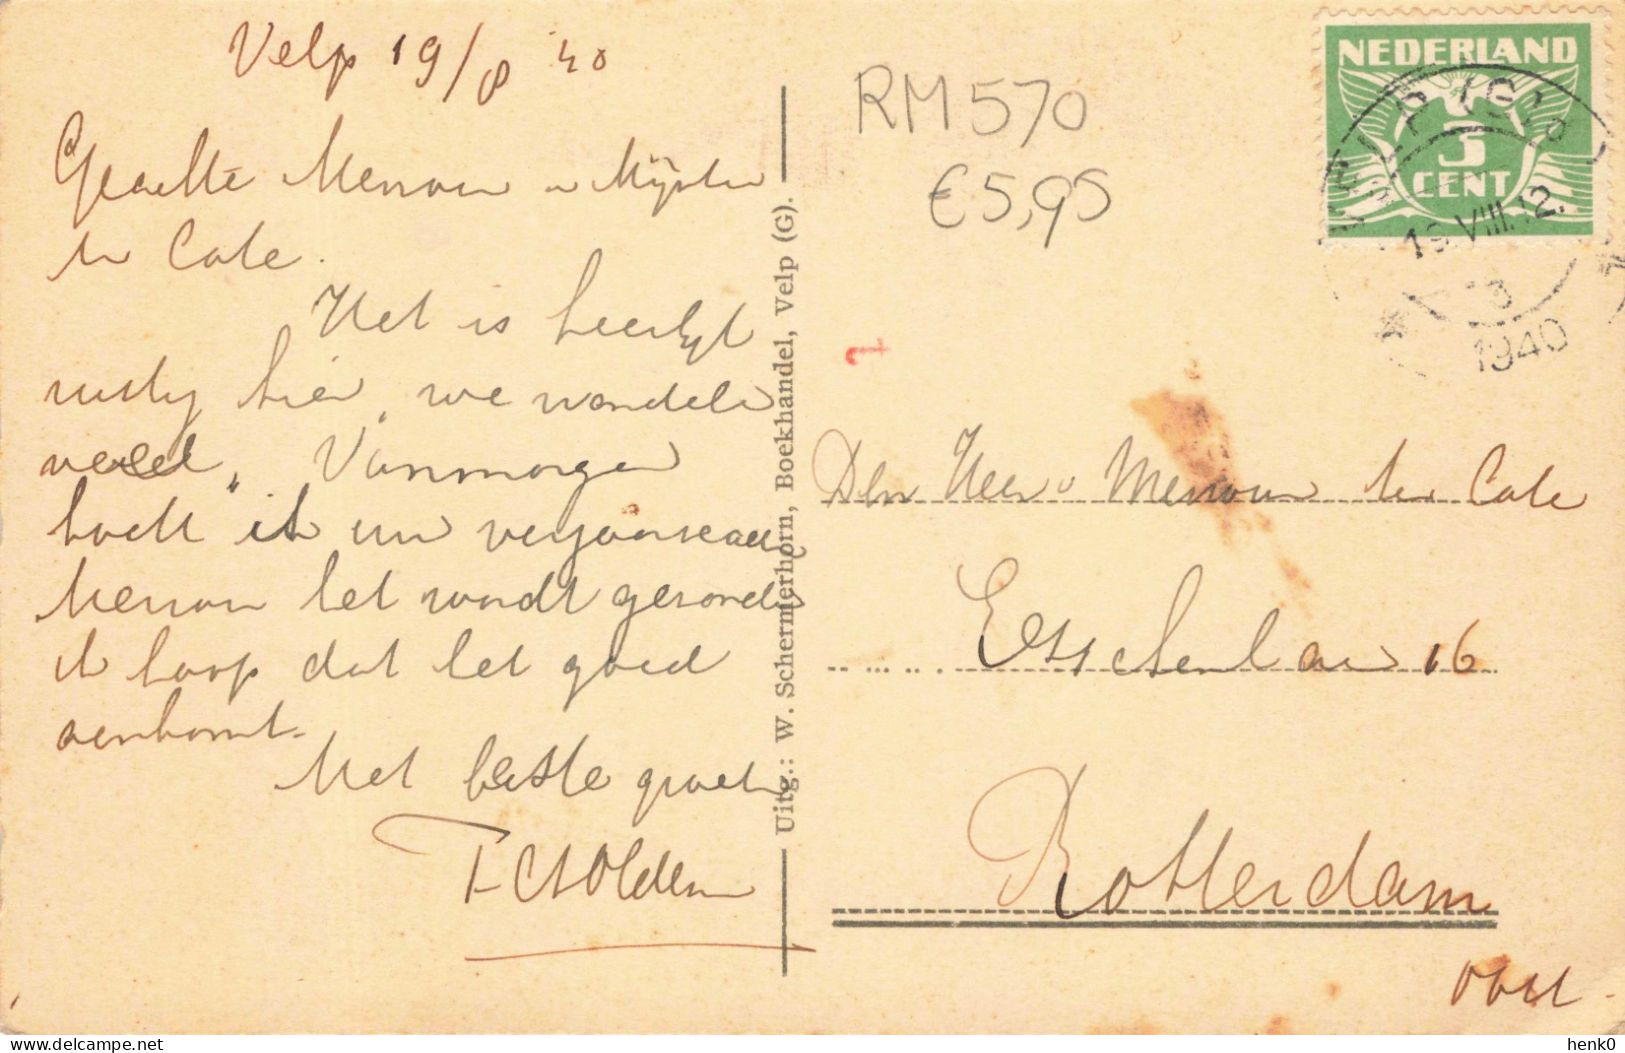 Velp 19/8 '40
Geachte Mevrouw en Mijnheer
ten Cate.
Het is heerlijk
rustig hier, we wandelen
veel. Vanmorgen
heeft ik uw verjaarscadeau
Mevrouw het wordt gezonden
ik hoop dat het goed
aankomt.
Met beste groeten
Uitg.: W. Schermerhorn, Boekhandel, Velp (G).
RM570
€5,95
1
NEDERLAND
5
CENT
VELP (GLD)
19.VIII.12.
3
1940
Den Heer & Mevrouw ten Cate
Esschenlaan 16
Rotterdam
henk0
delcampe.net